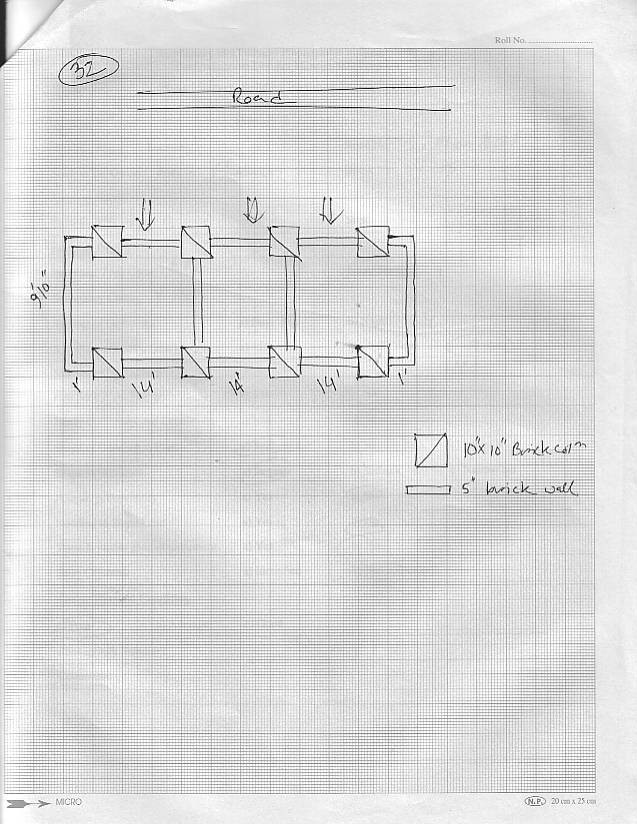 Roll No.
32
Road
9'10"
1'
14'
14'
14'
1'
10"x10" Brick colmn
5" brick wall
MICRO
N.P. 20 cm x 25 cm